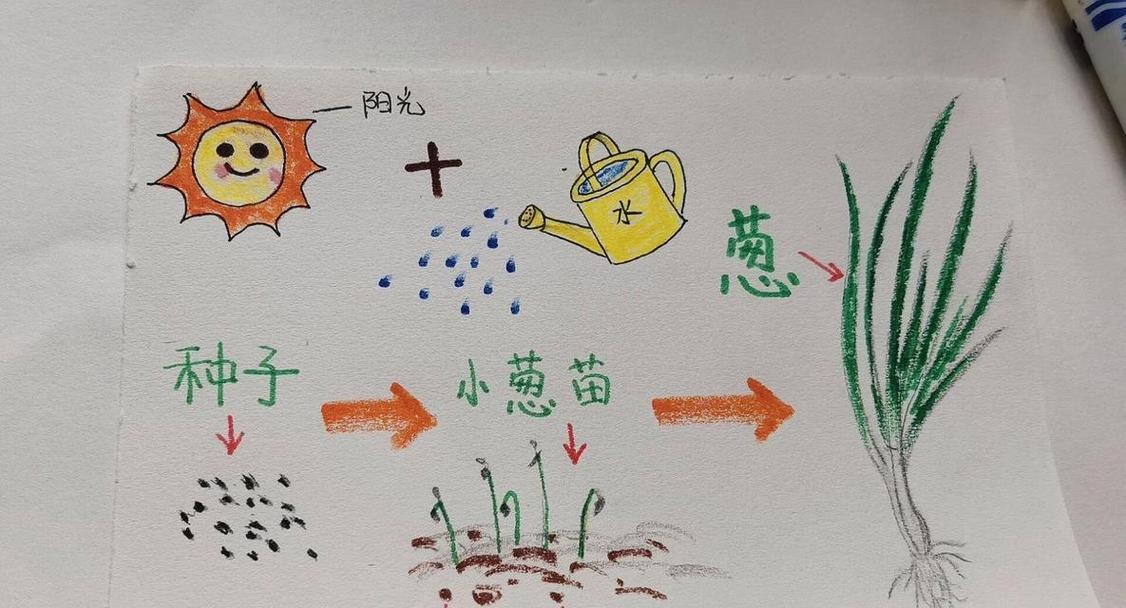 阳光
+
水
葱
种子
小葱苗